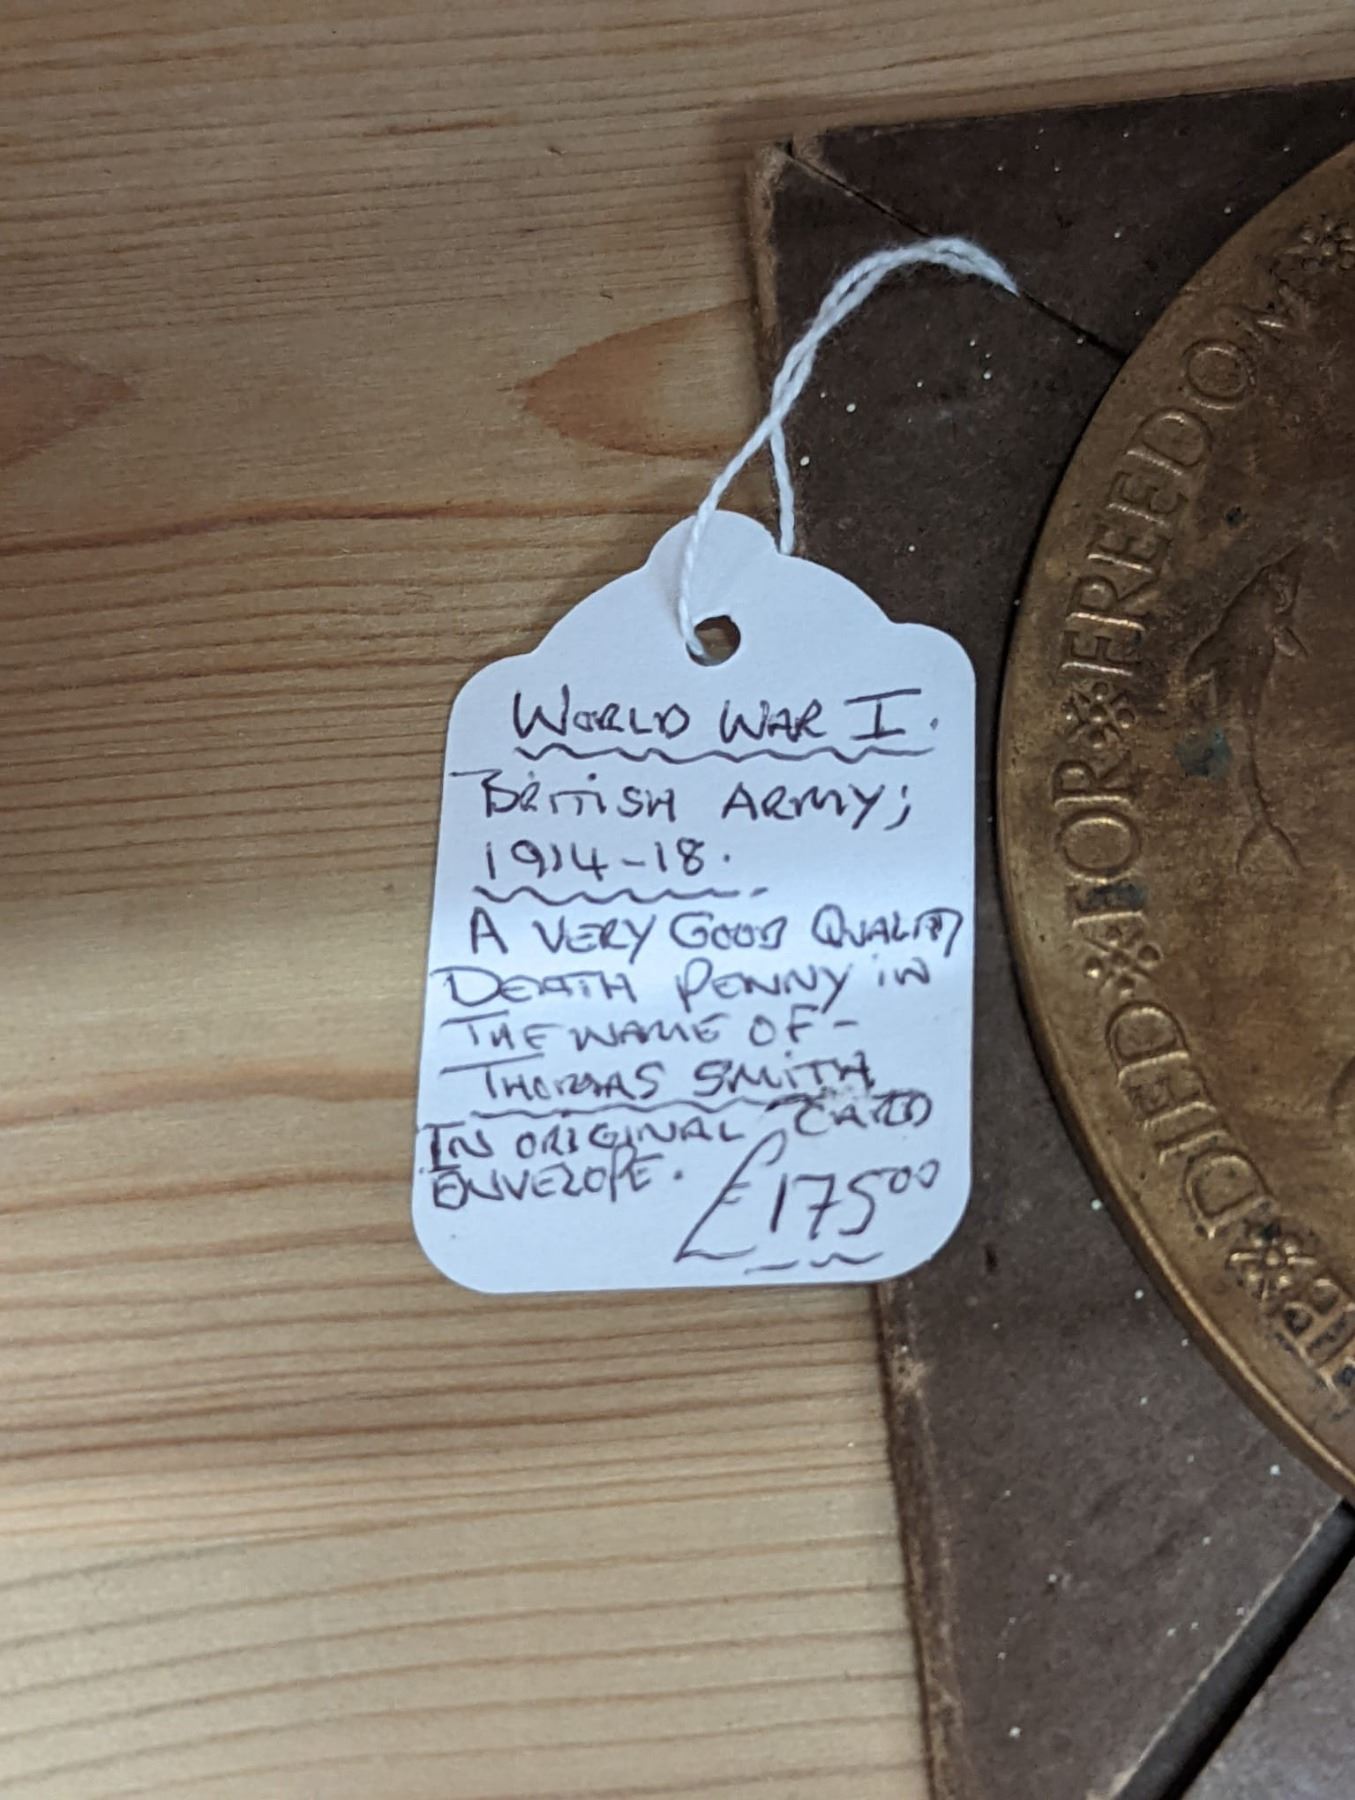 WORLD WAR I.
BRITISH ARMY;
1914-18.
A VERY GOOD QUALITY
DEATH PENNY IN
THE NAME OF -
THOMAS SMITH
IN ORIGINAL CARD
ENVELOPE.
£175.00
DIED FOR FREEDOM